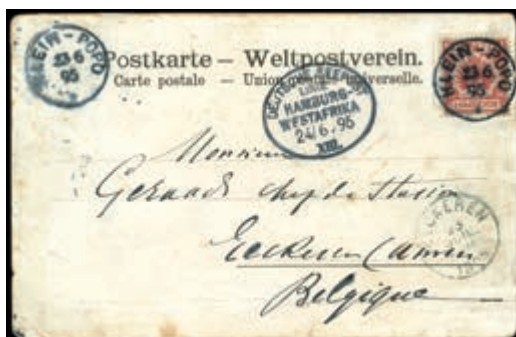 KLEIN-POPO
23 6
95
Postkarte — Weltpostverein.
Carte postale — Union postale universelle.
KLEIN-POPO
23 6
95
LINIE
HAMBURG-
WESTAFRIKA
24/6.95
XIII.
Monsieur
chef de Station
Eeckeren (Anvers
Belgique